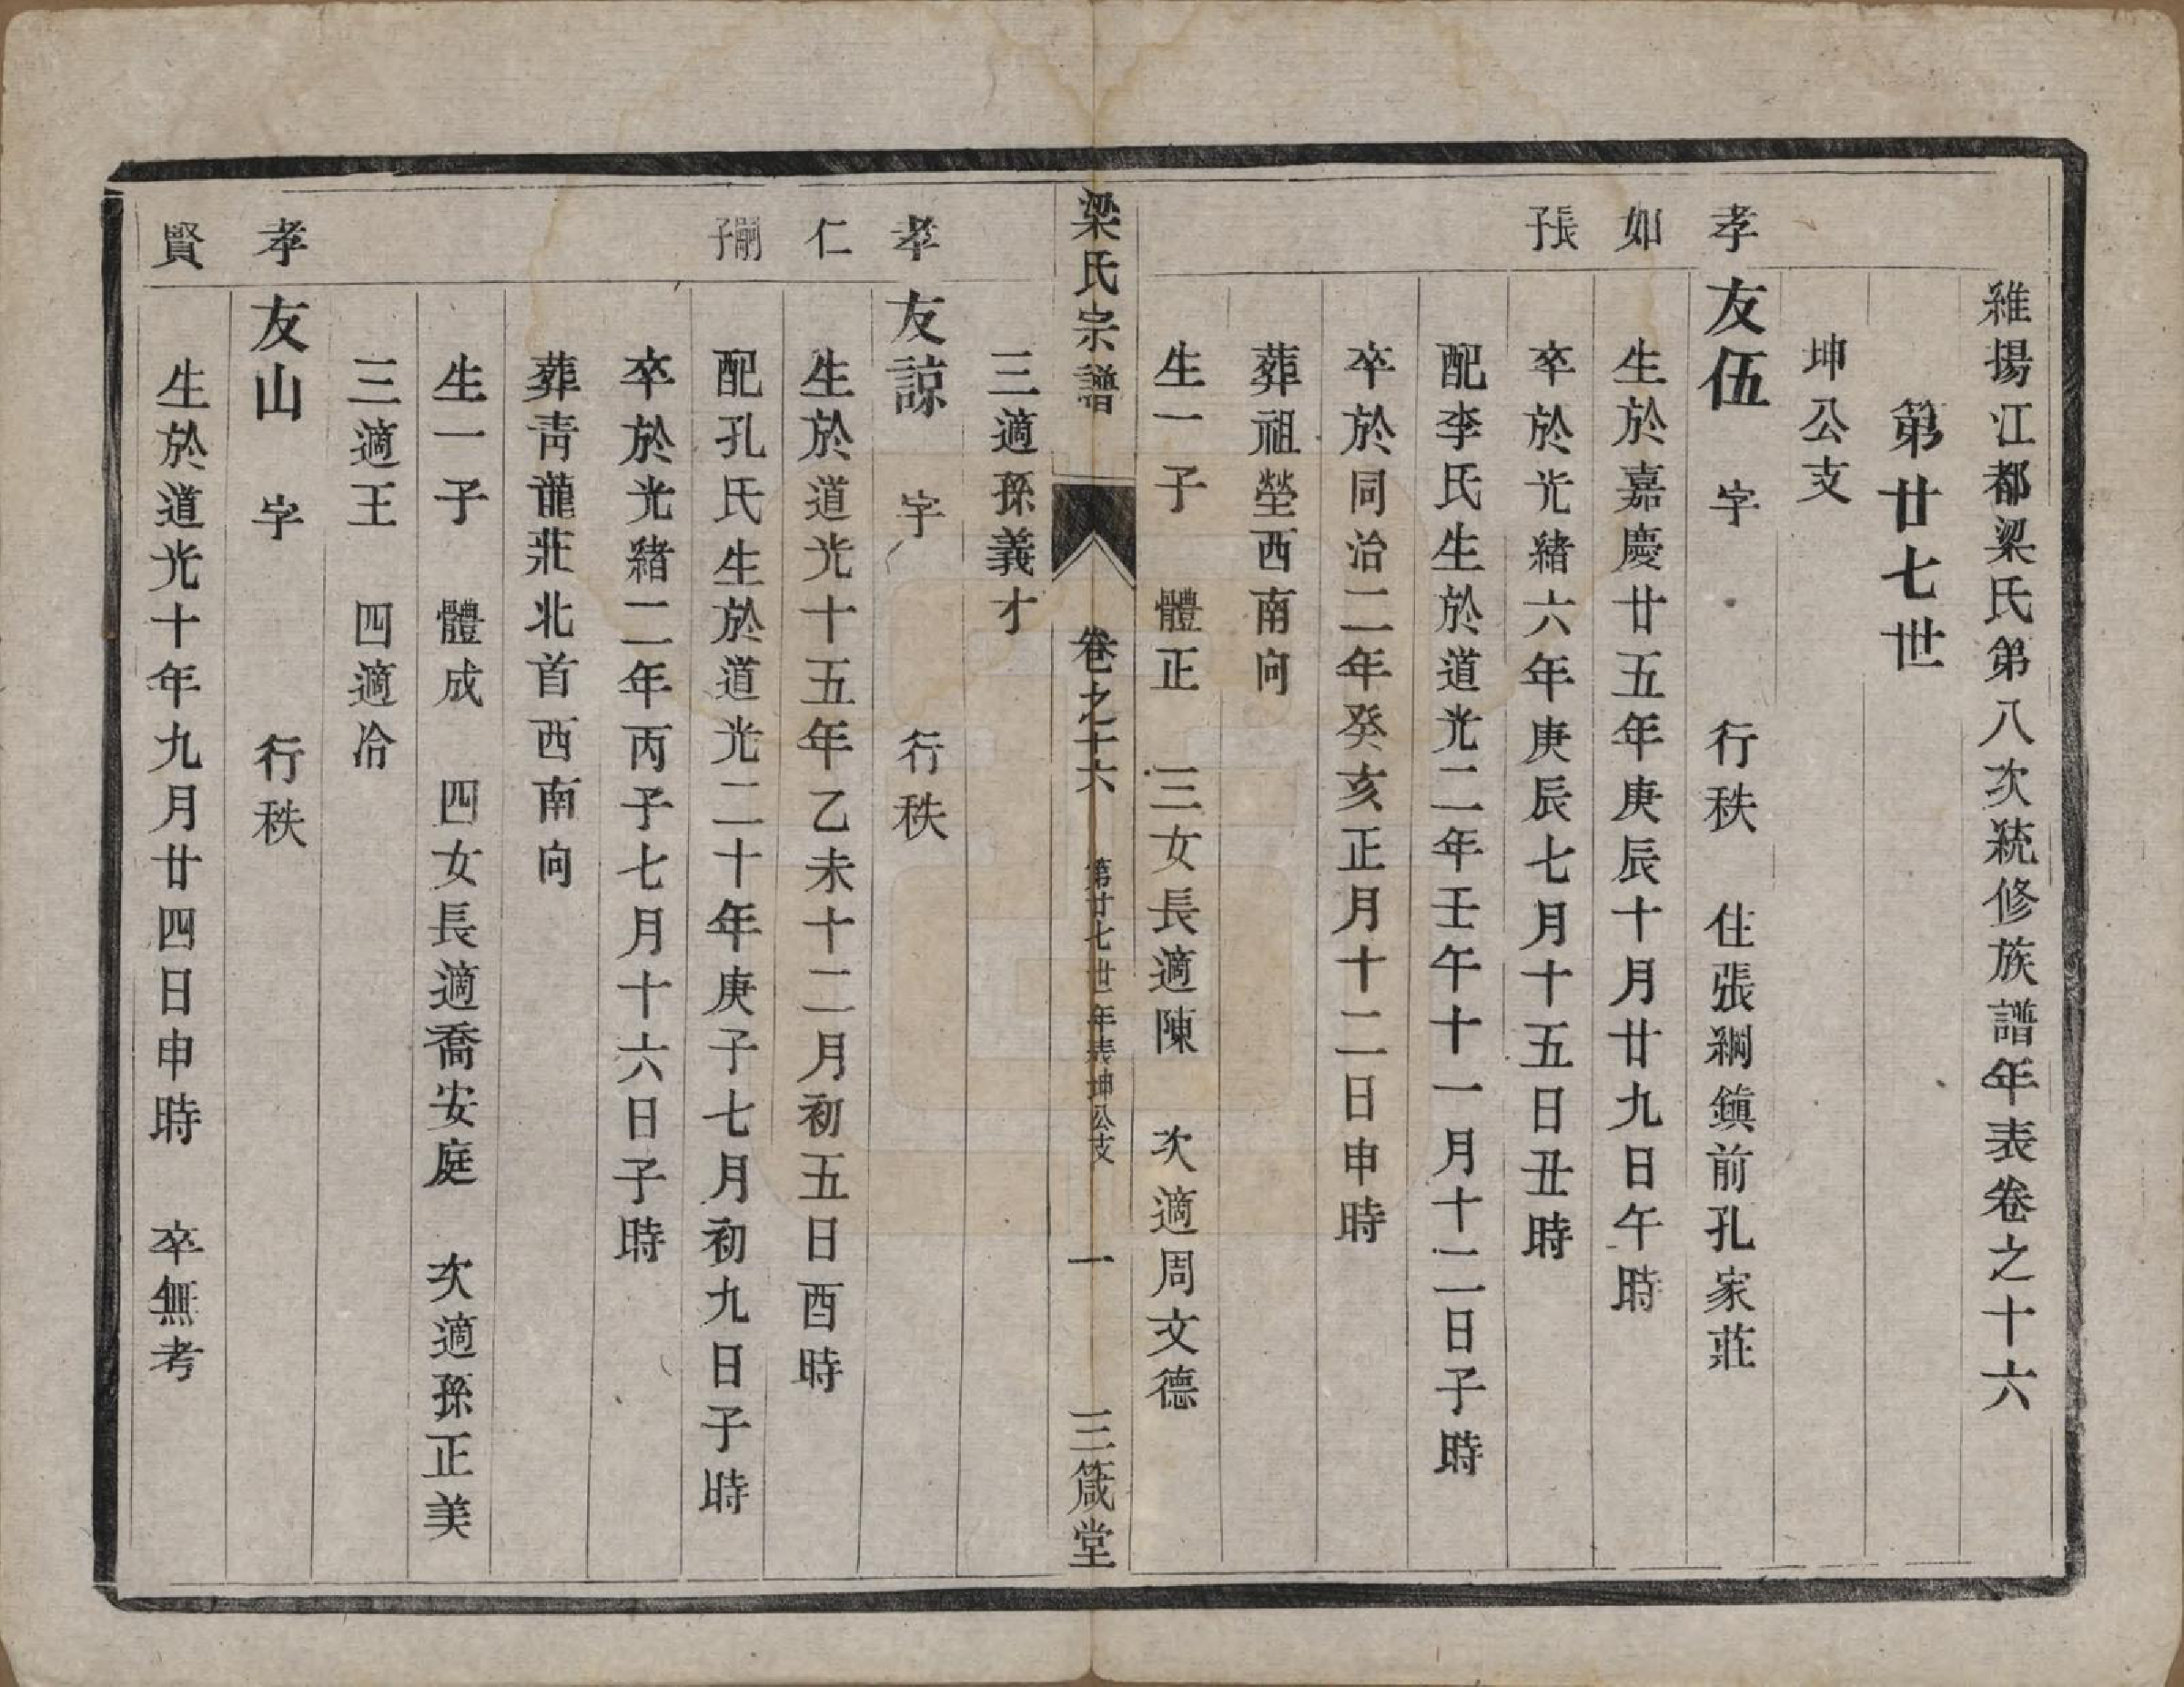 維揚江都梁氏第八次統修族譜年表卷之十六
第廿七世
坤公支
孝如長子
友伍　字　行秩　住張綱鎮前孔家莊
生於嘉慶廿五年庚辰十月廿九日午時
卒於光緒六年庚辰七月十五日丑時
配李氏生於道光二年壬午十一月十二日子時
卒於同治二年癸亥正月十二日申時
葬祖塋西南向
生一子　體正　三女長適陳　次適周文德
梁氏宗譜　卷之十六　第廿七世年表坤公支　一　三箴堂
三適孫義才
孝仁嗣子
友諒　字　行秩
生於道光十五年乙未十二月初五日酉時
配孔氏生於道光二十年庚子七月初九日子時
卒於光緒二年丙子七月十六日子時
葬青龍莊北首西南向
生一子　體成　四女長適喬安庭　次適孫正美
三適王　四適冾
孝賢
友山　字　行秩
生於道光十年九月廿四日申時　卒無考